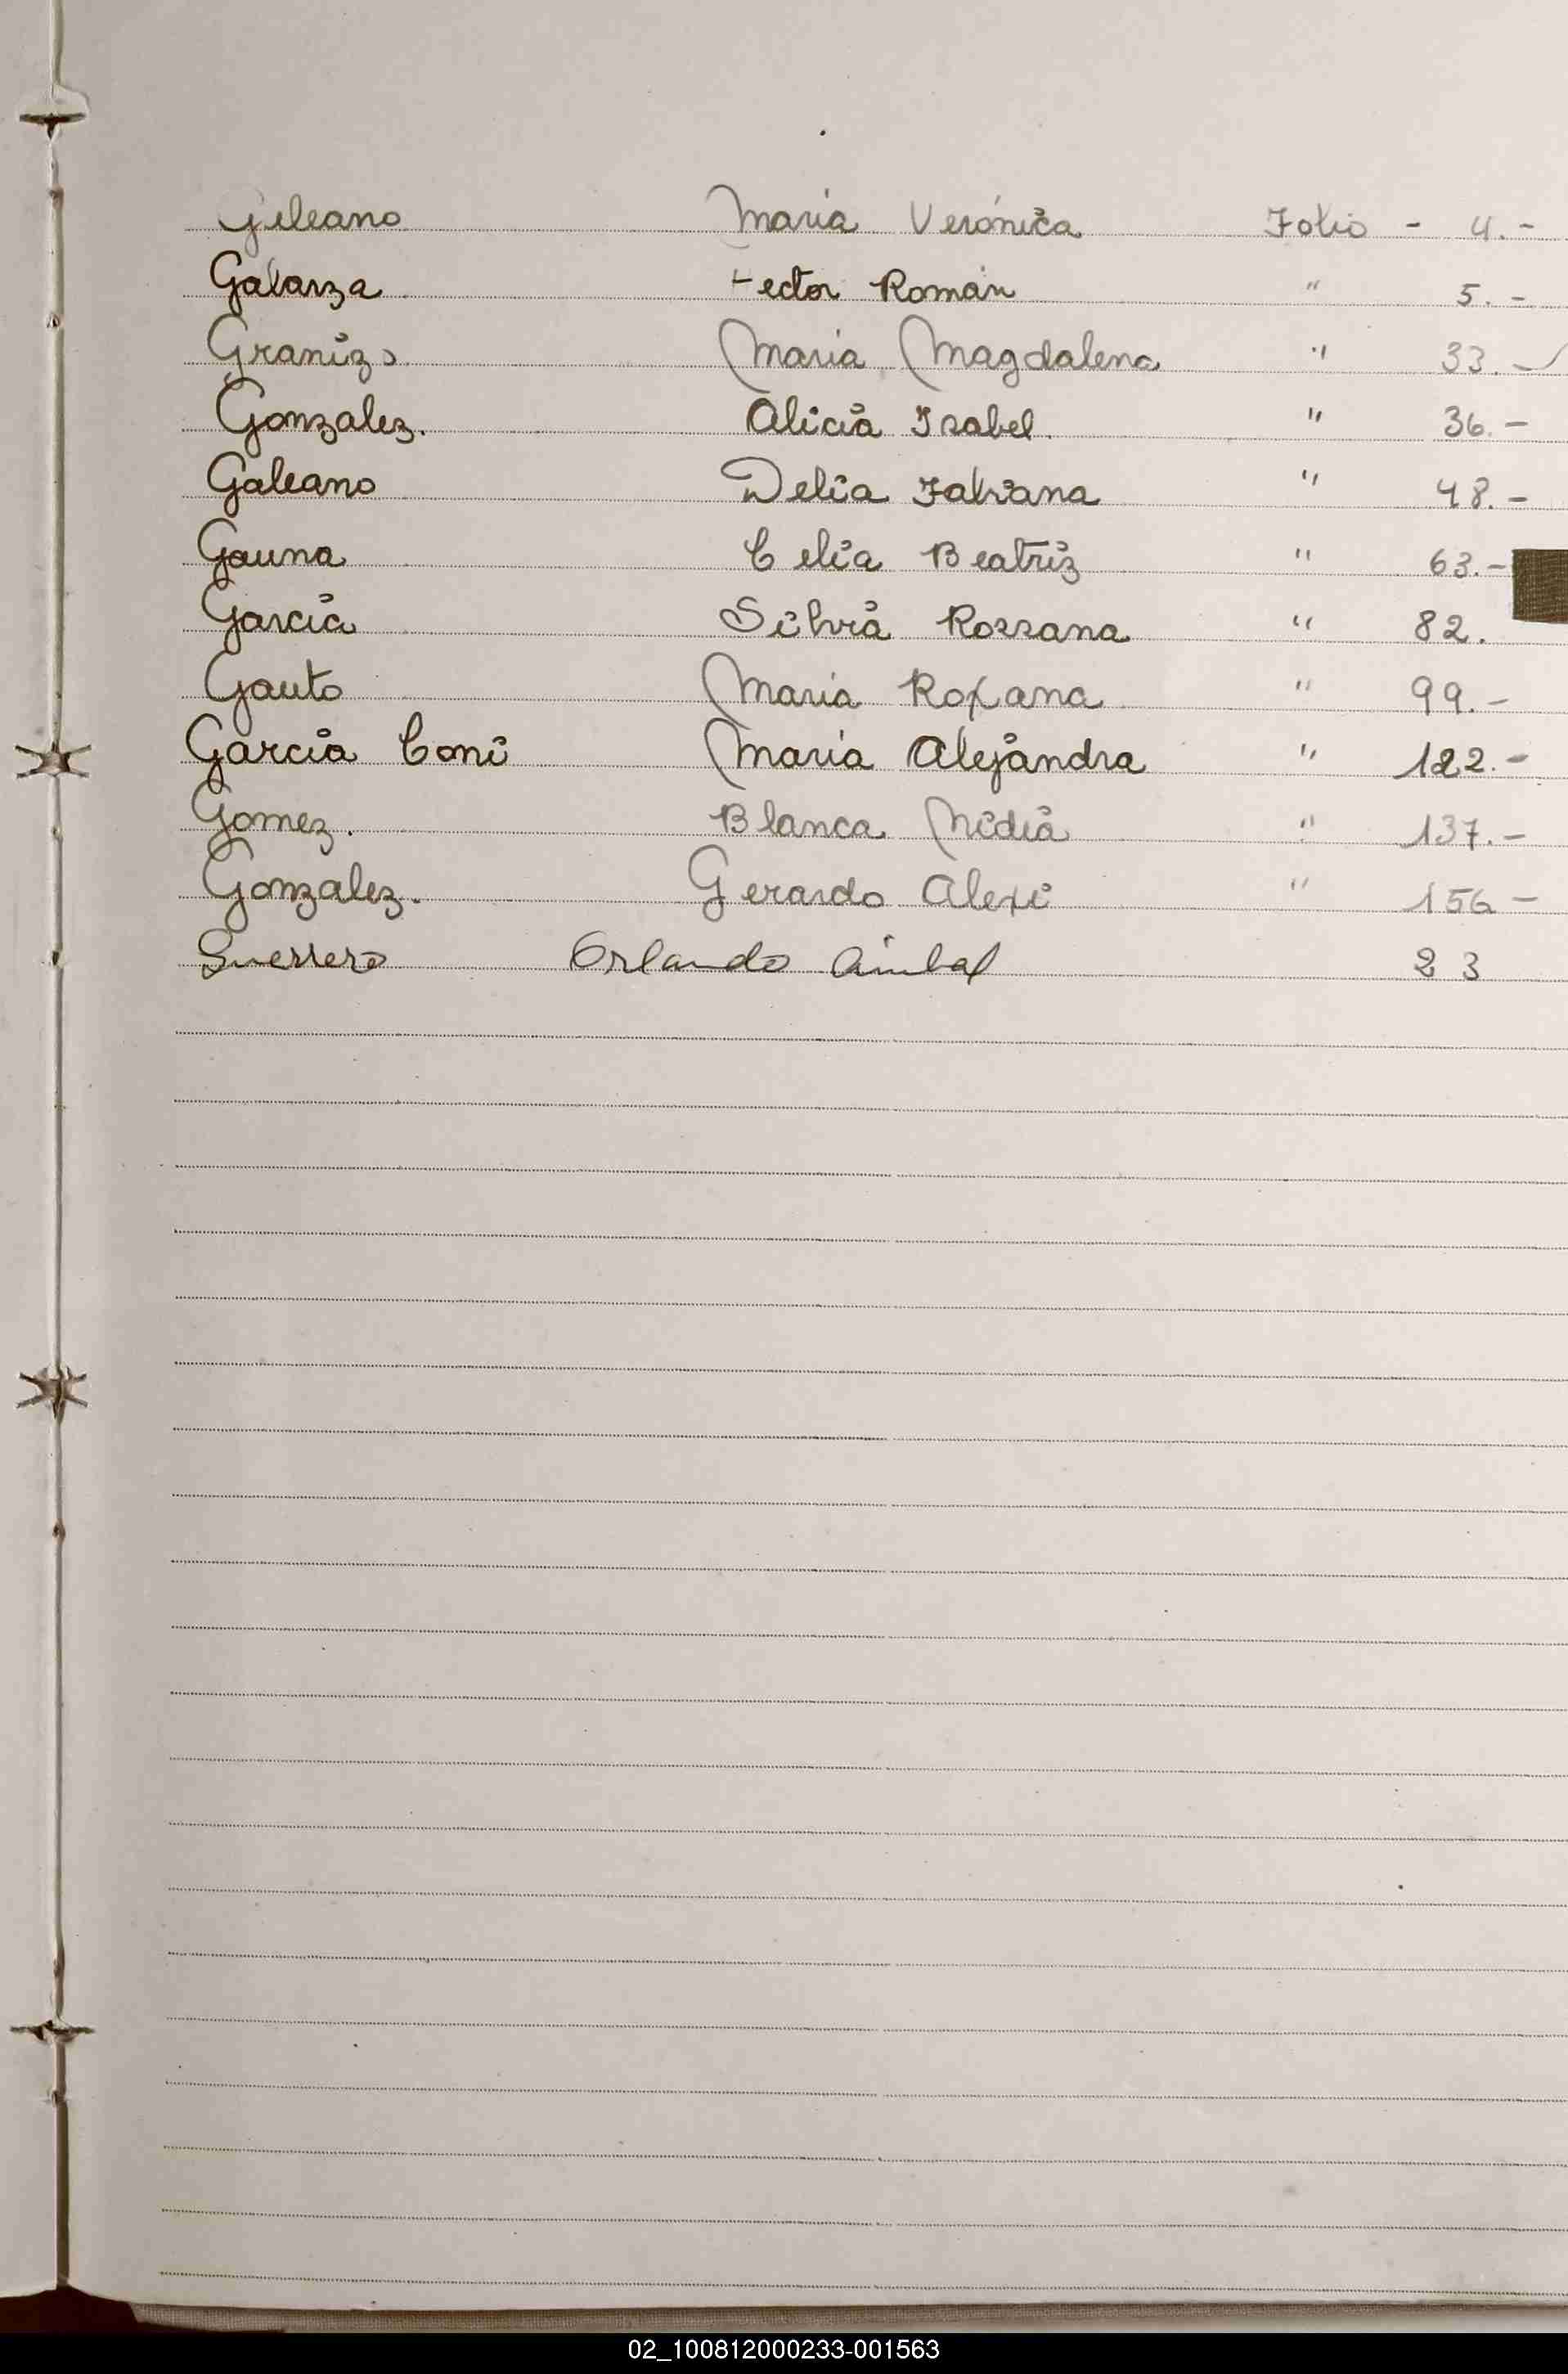 Geleano María Verónica Folio - 4.-
Galarza Hector Román " 5.-
Granizo María Magdalena " 33.-
Gonzalez. Alicia Isabel. " 36.-
Galeano Delia Fabiana " 48.-
Gauna Celia Beatriz " 63.-
García Silvia Rossana " 82.
Gauto María Roxana " 99.-
García Coni María Alejandra " 122.-
Gomez. Blanca Nidia " 137.-
Gonzalez. Gerardo Alexi " 156-
Guerrero Orlando Anibal 23
02_100812000233-001563